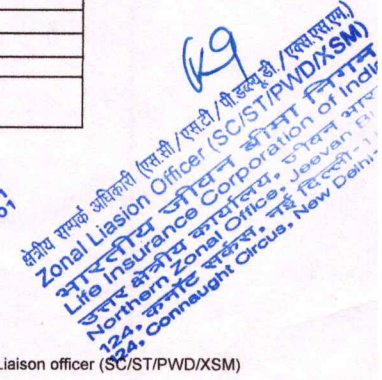 K9
क्षेत्रीय सम्पर्क अधिकारी (एस.सी / एस.टी / पी.डब्ल्यू.डी. / एक्स.एस.एम.)
Zonal Liasion Officer (SC/ST/PWD/XSM)
भारतीय जीवन बीमा निगम
Life Insurance Corporation of Indi
उत्तर क्षेत्रीय कार्यालय, जीवन भार
Northern Zonal Office, Jeevan B
124, कनॉट सर्कस, नई दिल्ली - 1
124, Connaught Circus, New Delhi-
01
Liaison officer (SC/ST/PWD/XSM)